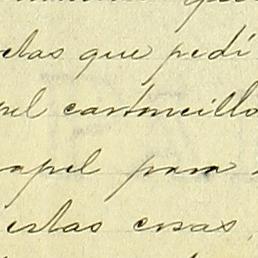 elas que pedí
pel cartoncillo
papel para
estas cosas,